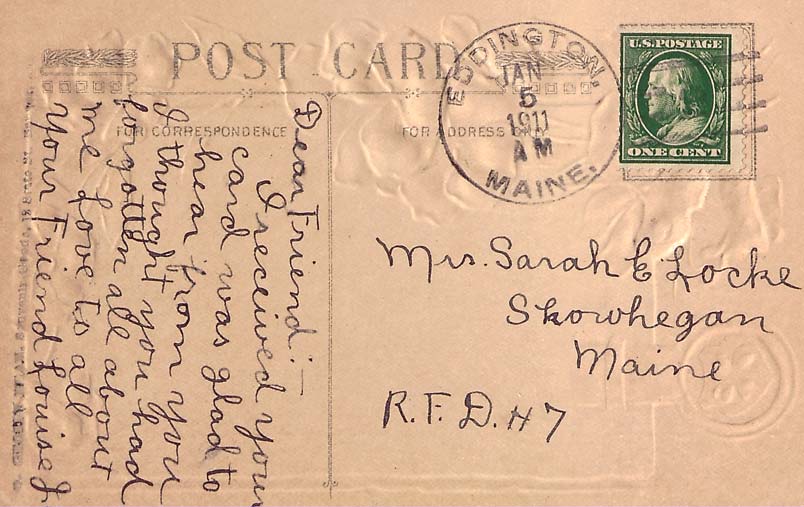 POST CARD
FOR CORRESPONDENCE
FOR ADDRESS
EDDINGTON,
JAN
5
1911
AM
MAINE.
U.S. POSTAGE
ONE CENT
Dear Friend:—
I received your
card was glad to
hear from you
I thought you had
forgotten all about
me Love to all
Your Friend Louise J
Mrs. Sarah E Locke
Skowhegan
Maine
R.F.D. # 7